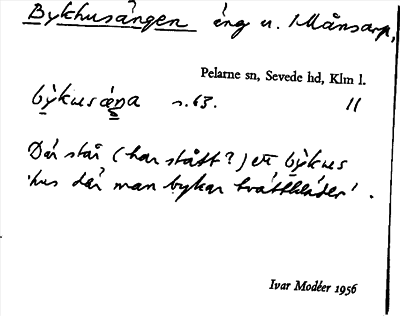 Bykhusängen äng u. Månsarp,
Pelarne sn, Sevede hd, Klm l.
by̱kusäŋa s. 63. 11
Där står (har stått?) ett by̱kus
'hus där man bykar tvättkläder'.
Ivar Modéer 1956